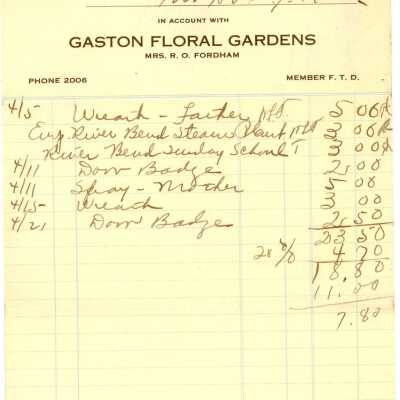 IN ACCOUNT WITH
GASTON FLORAL GARDENS
MRS. R. O. FORDHAM
PHONE 2006 MEMBER F. T. D.
4/5 Wreath - Father 5 00
Emp River Bend Steam Plant 3 00
River Bend Sunday School 3 00
4/11 Door Badge 2,00
4/11 Spray - Mother 5 00
4/15 Wreath 3 00
4/21 Door Badge 2,50
23 50
20 % 4 70
18,80
11.00
7.80